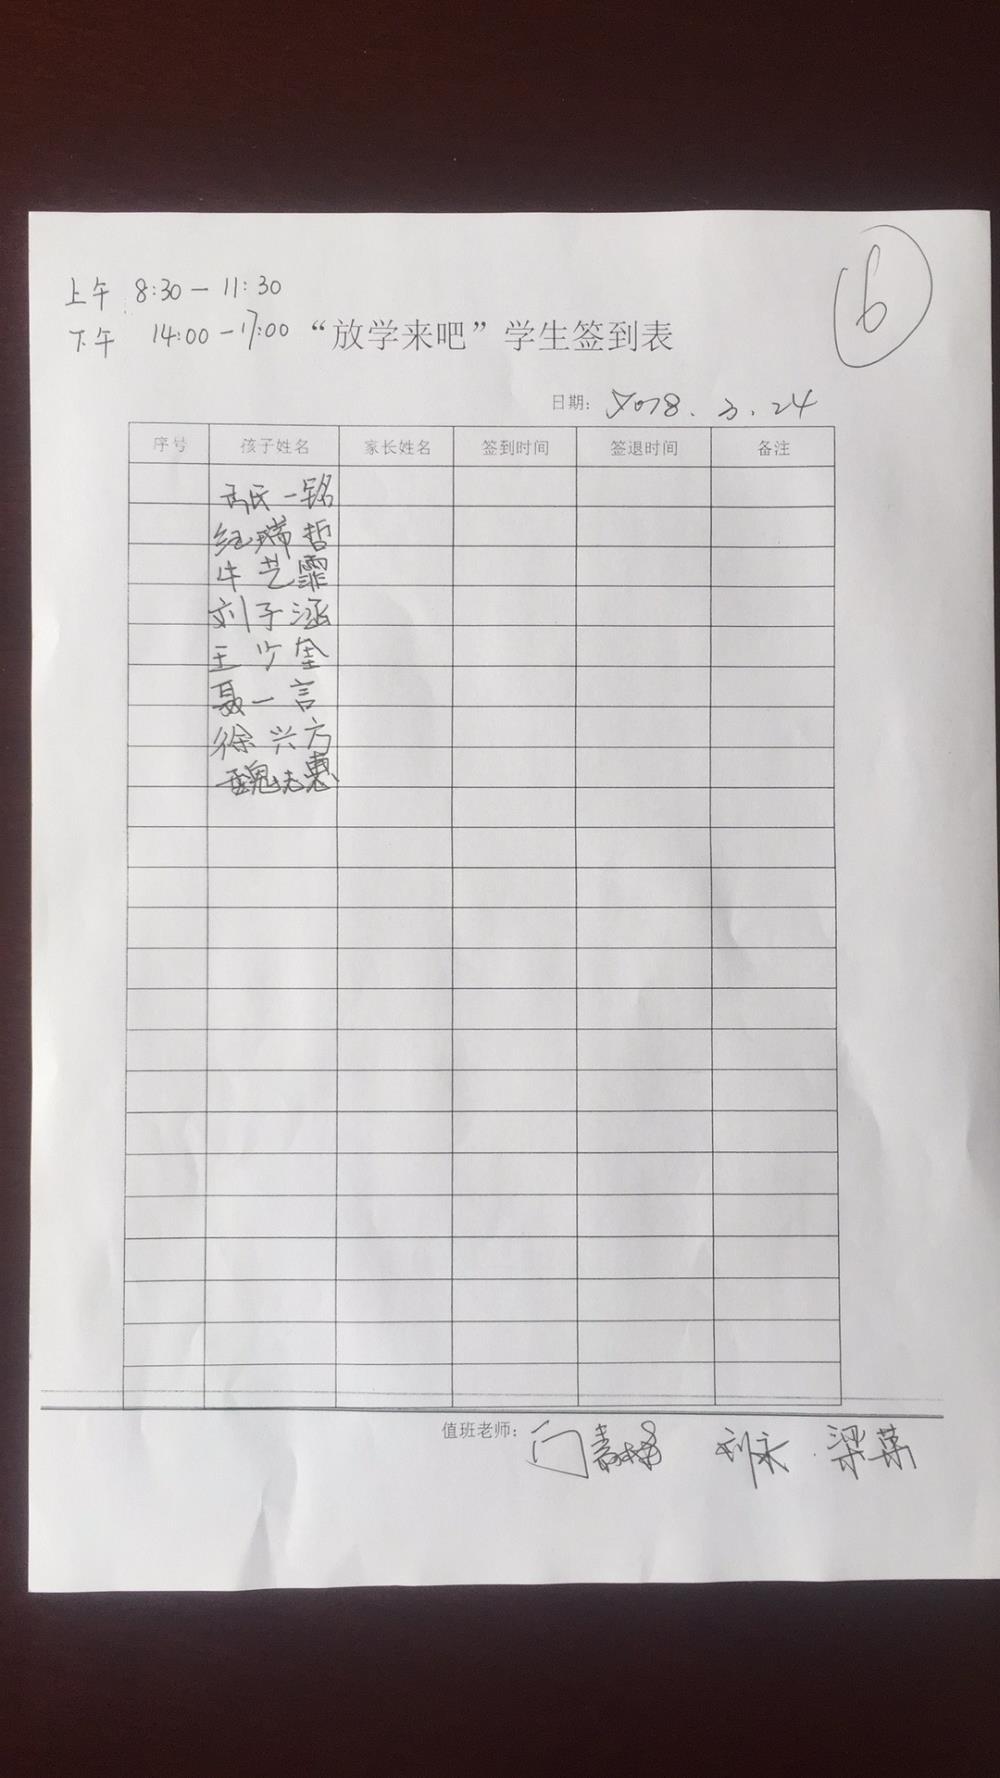 上午 8:30 — 11:30
⑥
下午 14:00 — 17:00 “放学来吧”学生签到表
日期: 2018.3.24
序号 孩子姓名 家长姓名 签到时间 签退时间 备注
一铭
瑞哲
牛艺霏
刘子涵
王少奎
聂一言
徐兴方
魏志惠
值班老师: 门春梅 刘永 梁荣